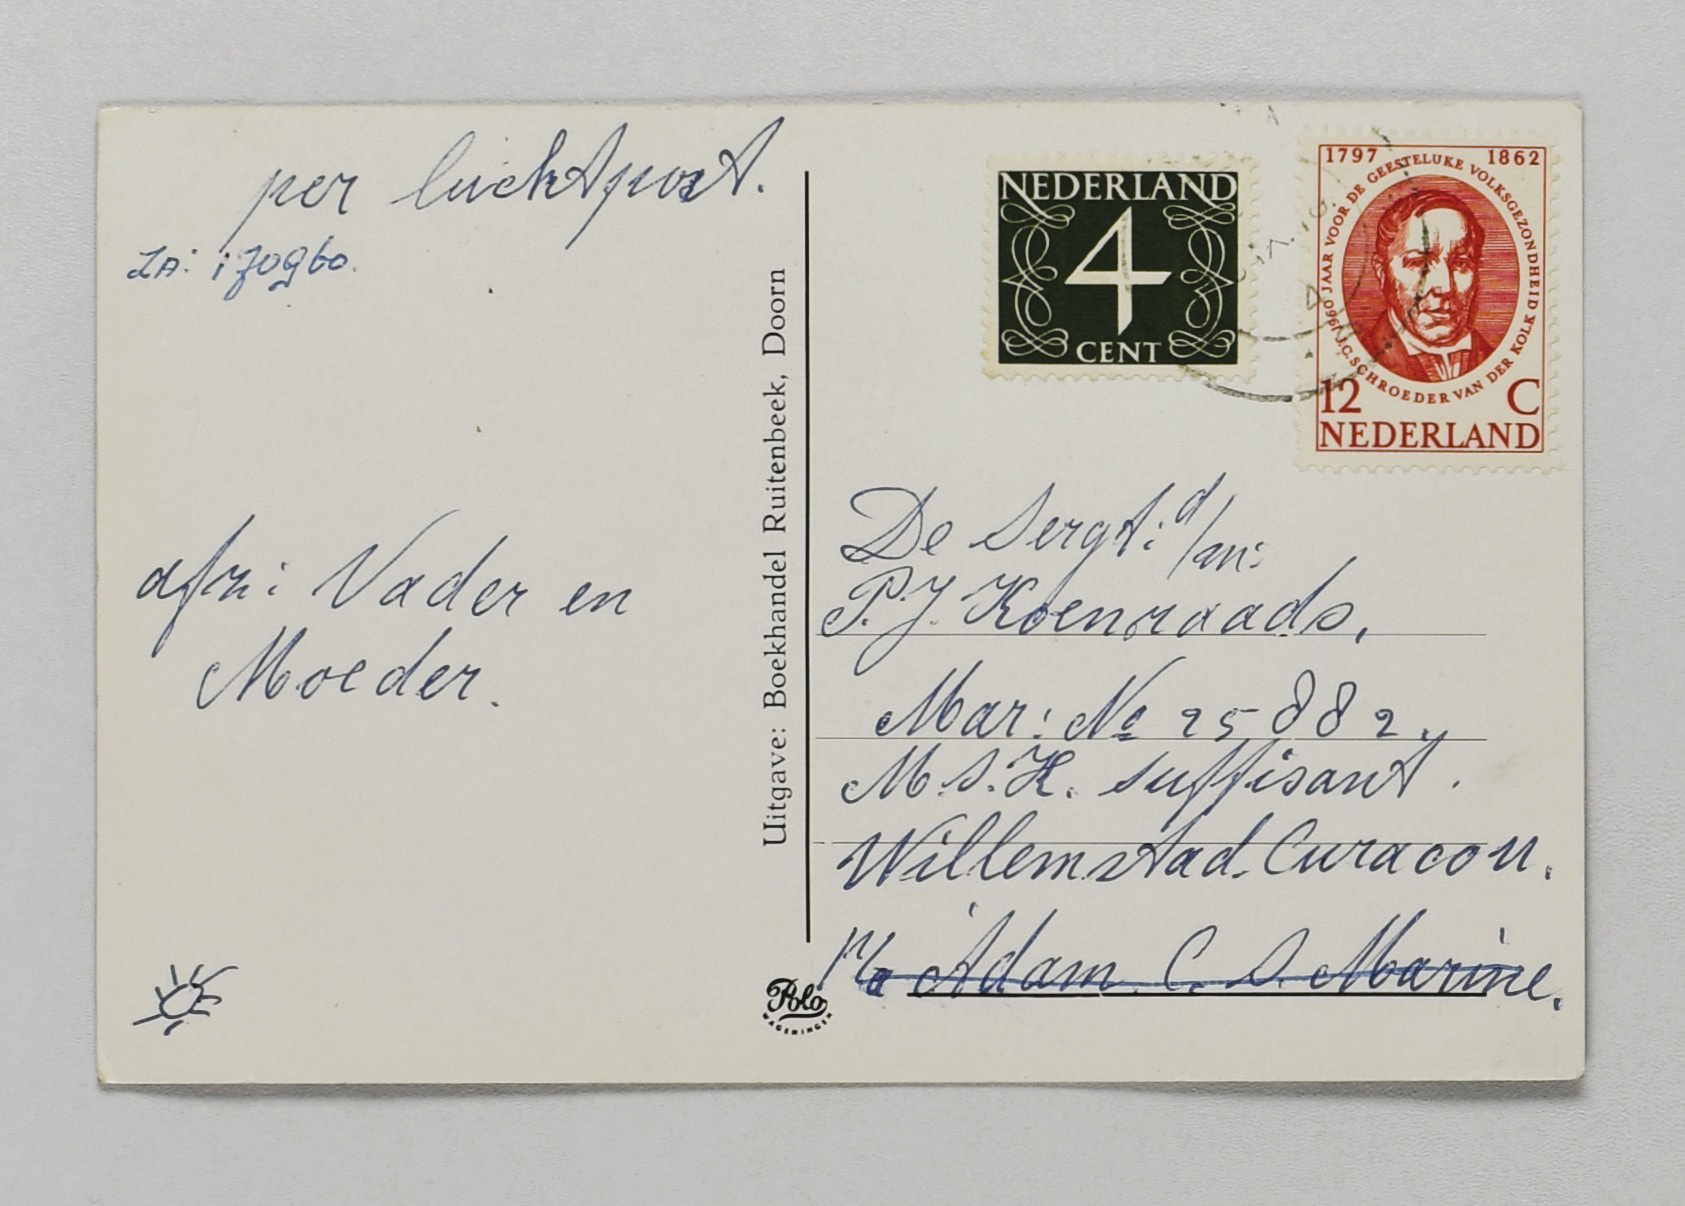 per luchtpost.
LA: 170960.
afz: Vader en
Moeder.
Uitgave: Boekhandel Ruitenbeek, Doorn
Polo
WAGENINGEN
NEDERLAND
4
CENT
1797 1862
1960 JAAR VOOR DE GEESTELIJKE VOLKSGEZONDHEID
J.L.C. SCHROEDER VAN DER KOLK
12 C
NEDERLAND
De Sergt: d/m:
P.J. Koenraads,
Mar: No 25882,
M.S.K. suffisant.
Willemstad. Curacou.
p/a A'dam. C. S. Marine.